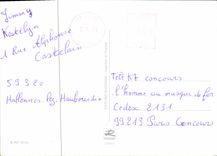 Jimmy
Kastelyn
1 Rue Alphonse
Castelain
59320
Hallennes Lez Haubourdin
Télé K7 concours
l'homme au masque de fer
Cedex 2131
99213 Paris Concours